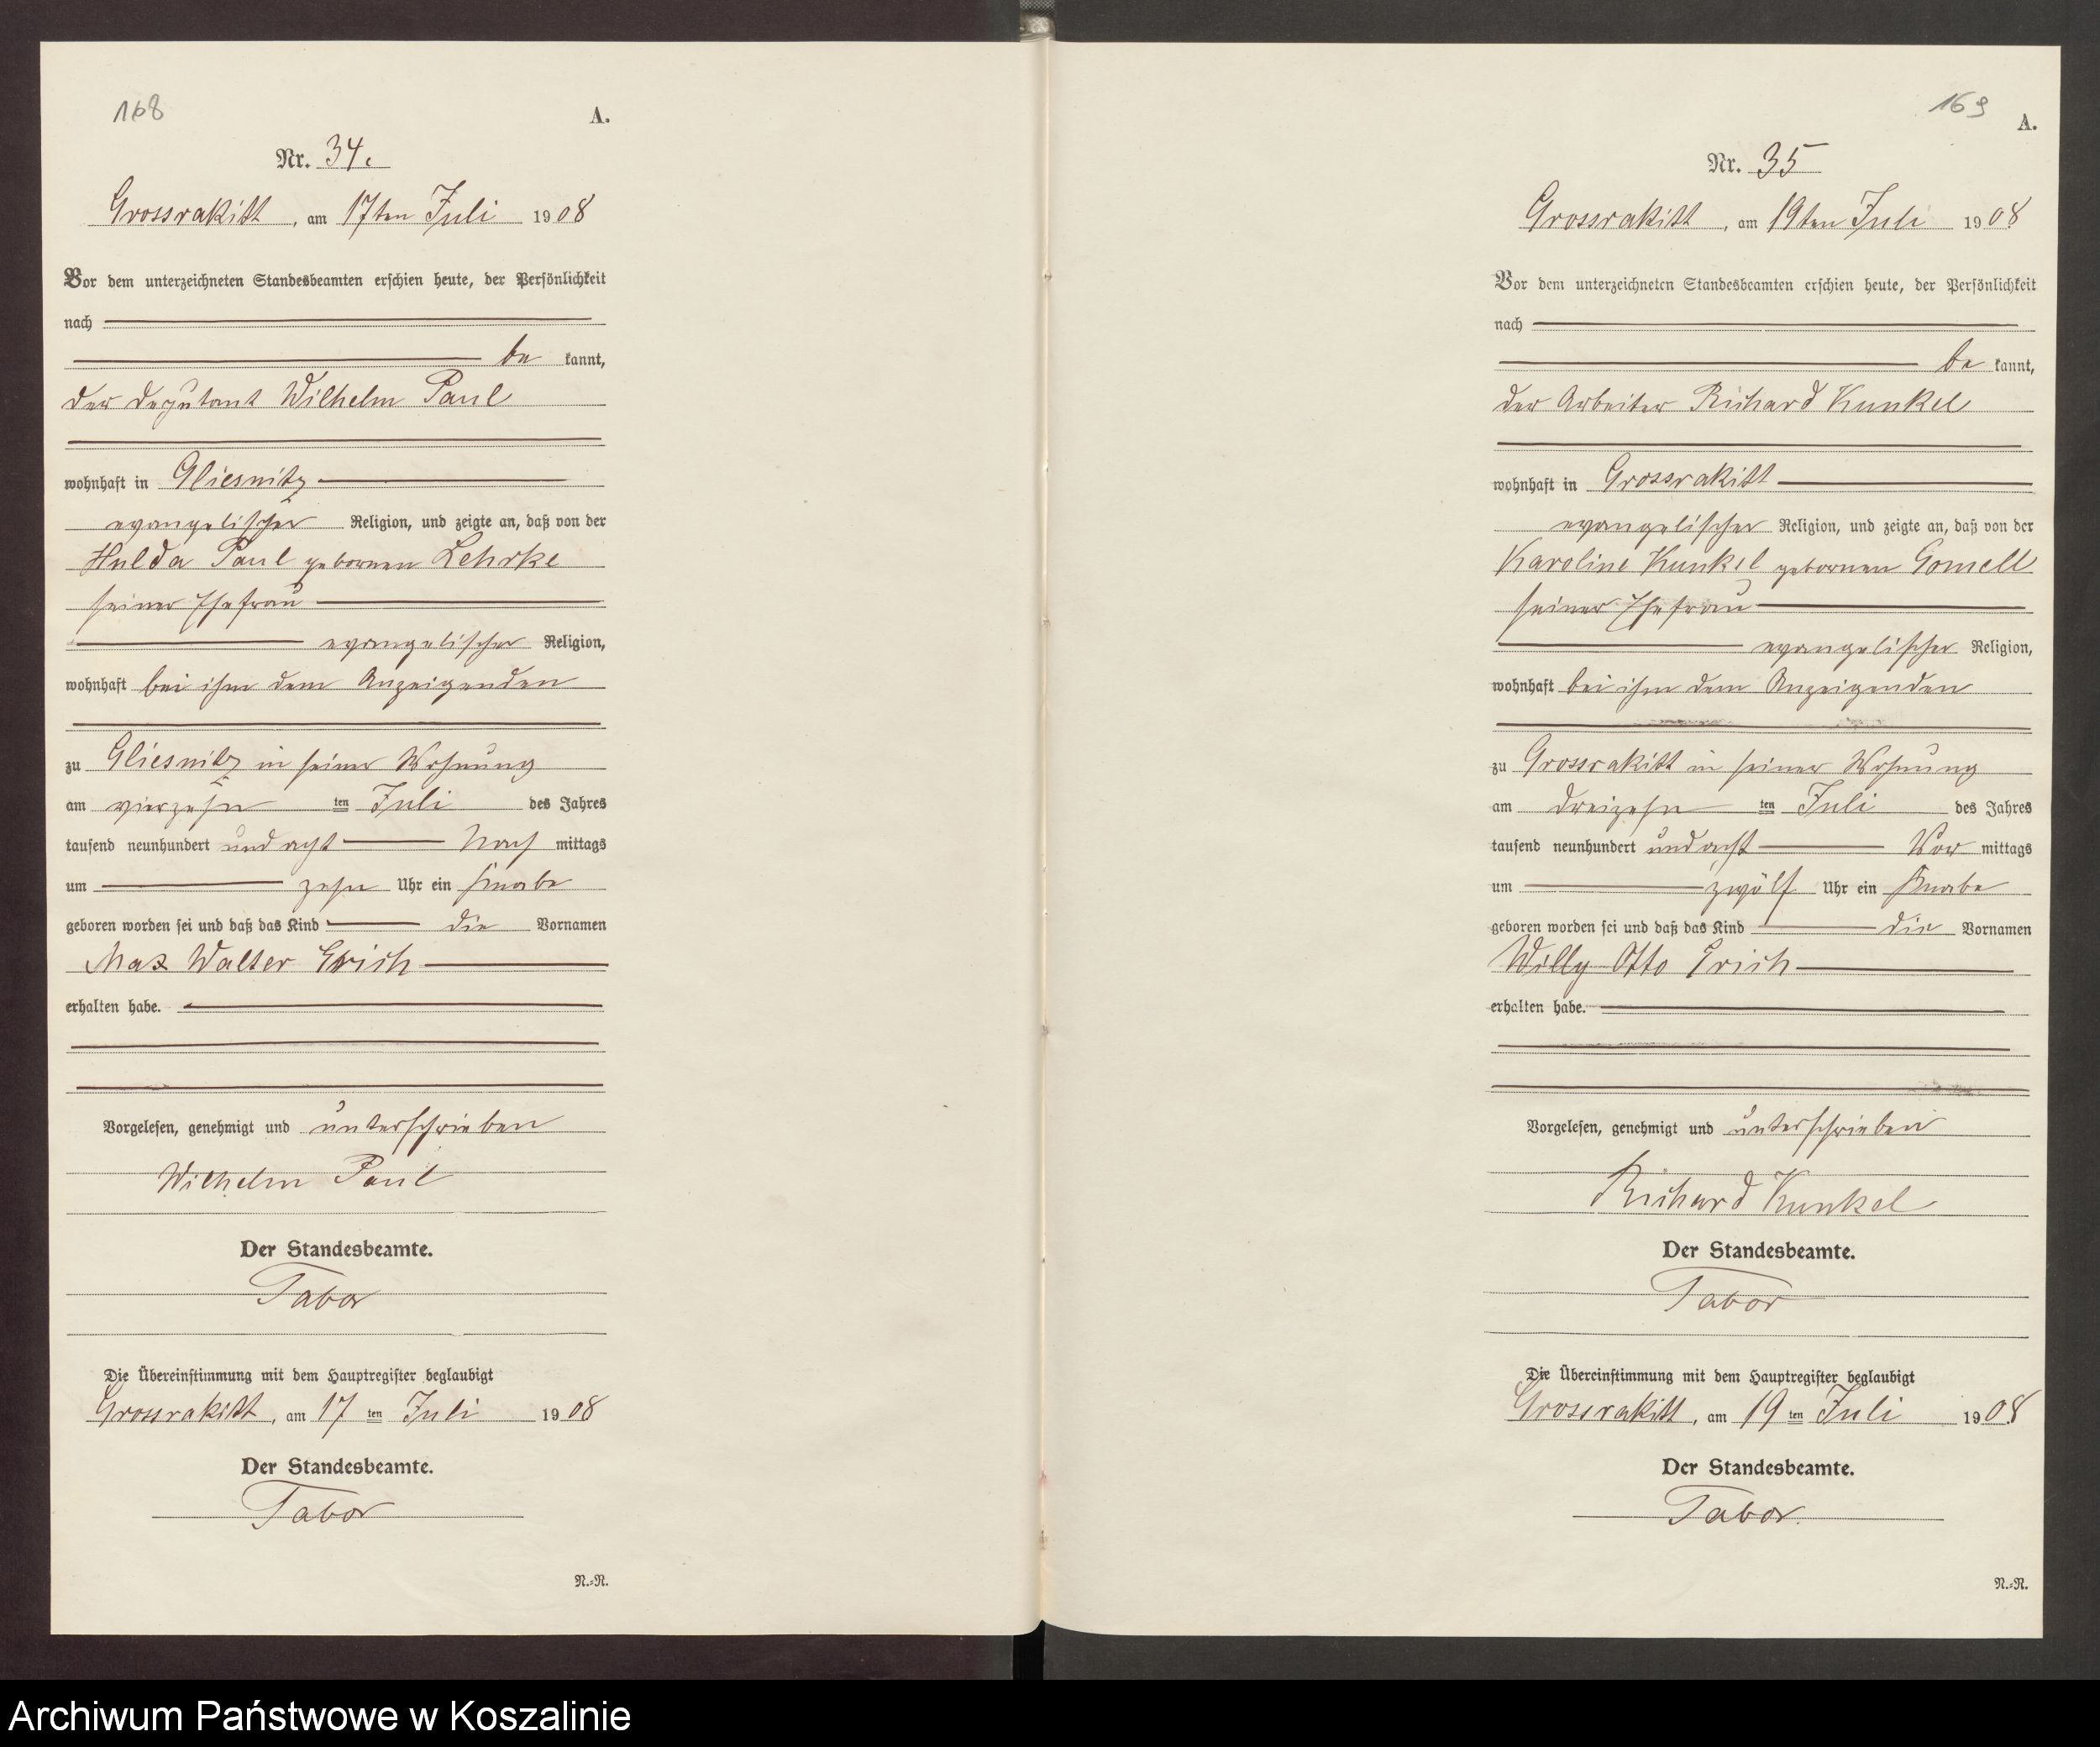 168
A.
Nr. 34.
Grossrakitt, am 17ten Juli 1908
Vor dem unterzeichneten Standesbeamten erschien heute, der Persönlichkeit
nach
be kannt,
der Deputant Wilhelm Paul
wohnhaft in Gliesnitz
evangelischer Religion, und zeigte an, daß von der
Hulda Paul gebornen Lehrke
seiner Ehefrau
evangelischer Religion,
wohnhaft bei ihm dem Anzeigenden
zu Gliesnitz in seiner Wohnung
am vierzehn ten Juli des Jahres
tausend neunhundert und acht Nach mittags
um zehn Uhr ein Knabe
geboren worden sei und daß das Kind die Vornamen
Max Walter Erich
erhalten habe.
Vorgelesen, genehmigt und unterschrieben
Wilhelm Paul
Der Standesbeamte.
Tabor
Die Übereinstimmung mit dem Hauptregister beglaubigt
Grossrakitt, am 17 ten Juli 1908
Der Standesbeamte.
Tabor
N.=N.
169
A.
Nr. 35
Grossrakitt, am 19ten Juli 1908
Vor dem unterzeichneten Standesbeamten erschien heute, der Persönlichkeit
nach
be kannt,
der Arbeiter Richard Kunkel
wohnhaft in Grossrakitt
evangelischer Religion, und zeigte an, daß von der
Karoline Kunkel gebornen Gomell
seiner Ehefrau
evangelischer Religion,
wohnhaft bei ihm dem Anzeigenden
zu Grossrakitt in seiner Wohnung
am dreizehn ten Juli des Jahres
tausend neunhundert und acht Vor mittags
um zwölf Uhr ein Knabe
geboren worden sei und daß das Kind die Vornamen
Willy Otto Erich
erhalten habe.
Vorgelesen, genehmigt und unterschrieben
Richard Kunkel
Der Standesbeamte.
Tabor
Die Übereinstimmung mit dem Hauptregister beglaubigt
Grossrakitt, am 19 ten Juli 1908
Der Standesbeamte.
Tabor.
N.=N.
Archiwum Państwowe w Koszalinie